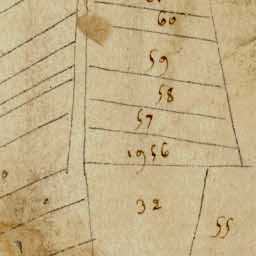 60
59
58
57
1956
32
55